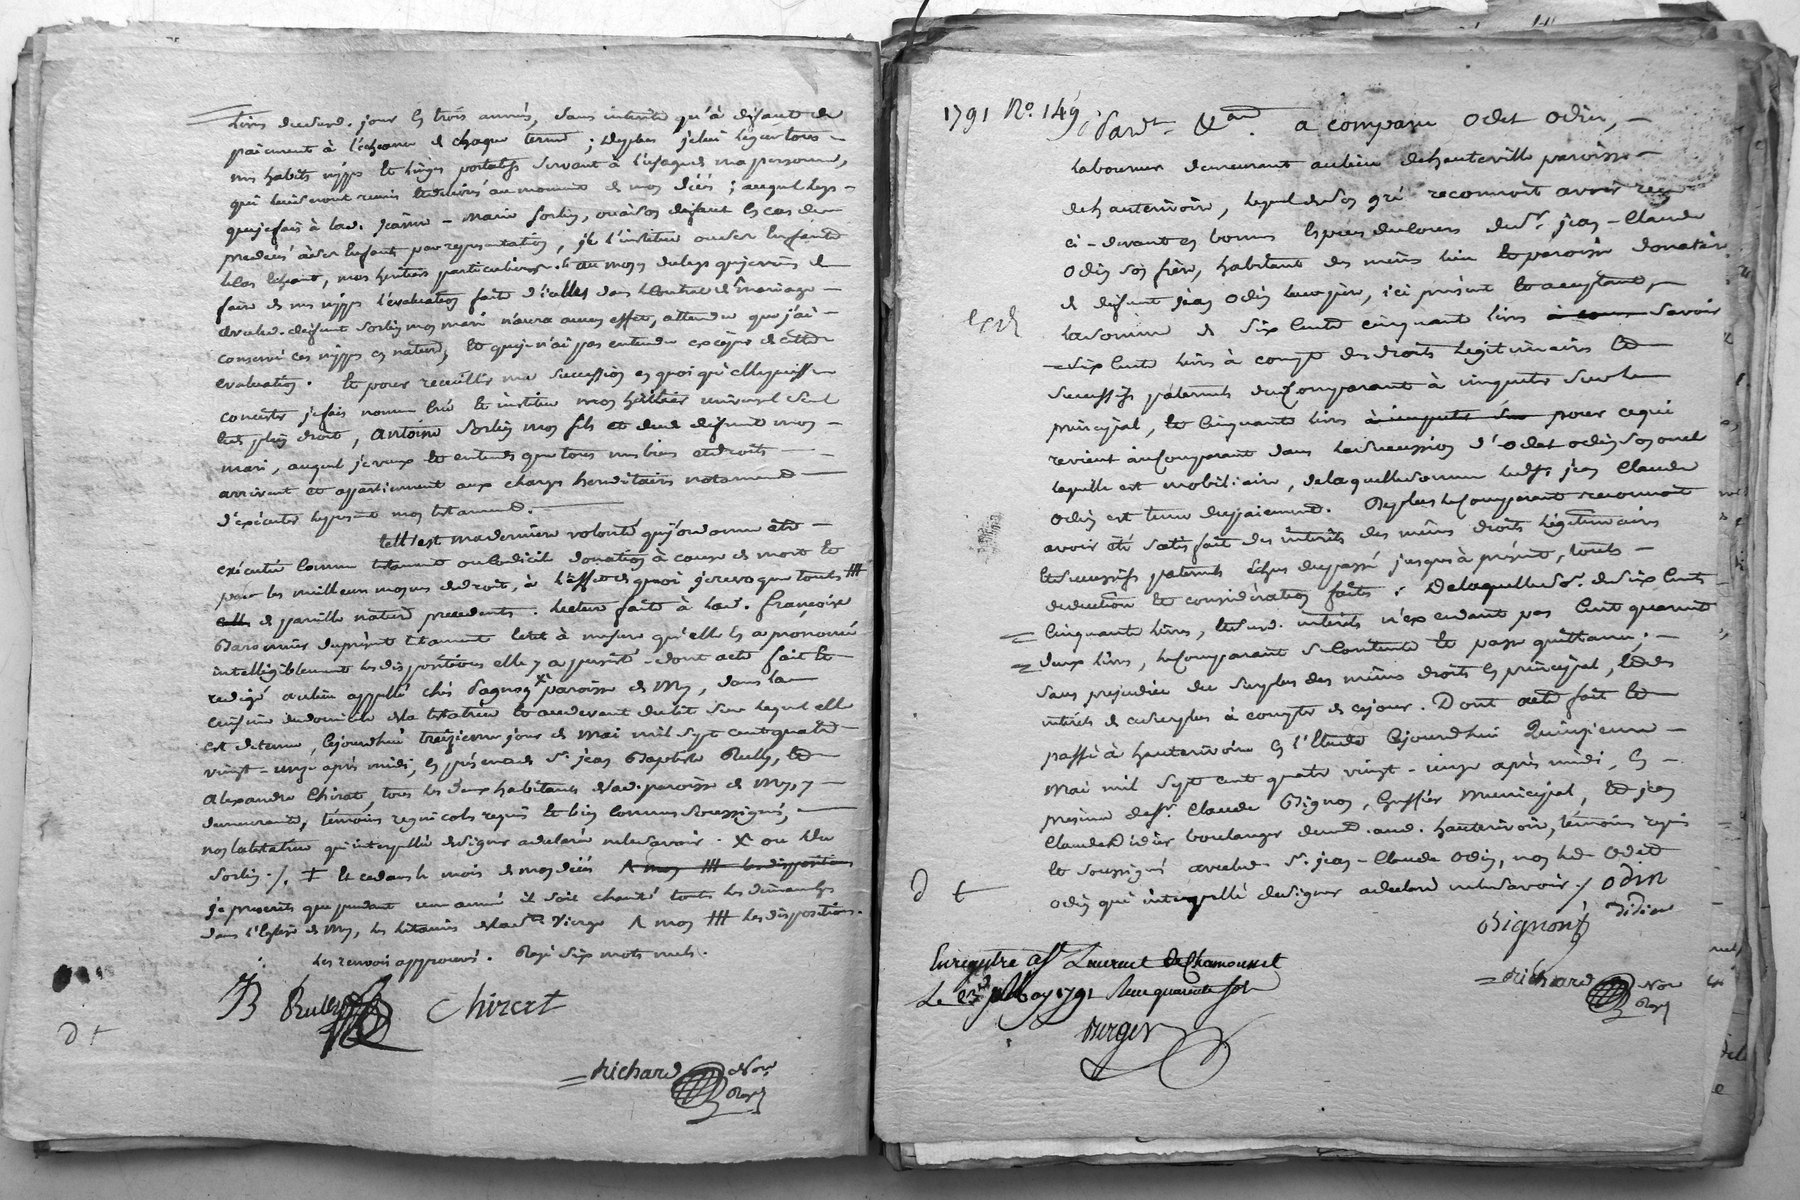 livres dud. jour en trois années, sans intérêt qu'à défaut de
paiement à l'échéance de chaque terme ; deplus je lui legue tous
mes habits nipes et linges portatifs servant à l'usage de ma personne,
qui lui seront remis et délivrés au moment de mon décès ; auquel legs
que je fais à lad. jeanne - marie Sorlin, ou à son défaut en cas de
prédécès à ses Enfants par représentation, je l'institue ou ses Enfants
le cas échéant, mes héritiers particuliers. au moyen du legs que je viens de
faire de mes nipes l'évaluation faite d'icelles dans le Contrat de mariage
avec led. défunt Sorlin mon mari n'aura aucun effet, attendu que j'ai
conservé ces nipes en nature, et que je n'ai pas entendu excéper de cette
évaluation. et pour recueillir ma succession en quoi qu'elle puisse
consister je fais nomme Crée et institue mon héritier universel seul
et de plein droit, Antoine Sorlin mon fils et dud. défunt mon
mari, auquel je veux et entends que tous mes biens et droits
arrivent et appartiennent aux charges héréditaires notamment
d'exécuter le présent mon testament.
telle est ma dernière volonté que j'ordonne être
exécutée Comme testament ou Codicile donation à cause de mort et
par les meilleurs moyens de droit, à l'effet de quoi je revoque toutes
celles de pareille nature précédents. lecture faite à lad. françoise
du présent testament et à mesure qu'elle en a prononcé
intelligiblement les dispositions elle y a persisté - dont acte fait et
redigé au lieu appellé chés Pagnon X paroisse de Mys, dans la
cuisine du domicile de la testatrice et au devant du lit sur lequel elle
est detenue, Cejourdhui treizieme jour de Mai mil sept cent quatre
vingt - onze après midi, en présence de Sr. jean Baptiste Rully, et
Alexandre Chirat, tous les deux habitants de lad. paroisse de Mys, y
demeurants, témoins regnicoles requis et bien connus soussignés,
non la testatrice qui interpellée de signer a déclaré ne le savoir. X ou du
Sorlin ./. + et ce dans le mois de mon décès les dispositions
je prescrits que pendant une année il soit chanté tous les dimanches
dans l'Eglise de Mys, les litanies de la Ste. Vierge les dispositions.
les renvois approuvés. Rayé six mots nuls.
JB Rully Chirat
D +
Richard Nore
Royal
1791 No. 149
Pardt. a comparu Odet Odin,
laboureur demeurant au lieu de hauteville paroisse
de hauterivoire, lequel de son gré reconnoit avoir reçu
ci - devant en bonnes Espèces du Cours de Sr. jean - Claude
Odin son frère, habitant des mêmes lieu et paroisse donataire
de défunt jean Odin leur père, ici présent et acceptant,
la somme de Six Cents cinquante livres à com Savoir
Six Cents livres à compte des droits légitimaires et
successifs paternels du Comparant à imputer sur le
principal, et Cinquante livres à imputer sur pour ce qui
revient au Comparant dans la succession d'Odet Odin son oncle
laquelle est mobiliaire, de laquelle somme led. Sr. jean Claude
Odin est tenu du paiement. Deplus le Comparant reconnoit
avoir été satisfait des intérêts des mêmes droits légitimaires
et successifs paternels échus du passé jusques à présent, toute
déduction et considération faites. De laquelle So. de Six Cents
Cinquante livres, et desd. intérêts n'excédant pas Cent quarante
deux livres, le Comparant se Contente et passe quittance,
sans préjudice du surplus des mêmes droits en principal, et des
intérêts de ce surplus à compter de cejour. Dont acte fait et
passé à hauterivoire en l'Etude Cejourdhui Quinzieme
Mai mil Sept cent quatre vingt - onze après midi, En
présence de Sr. Claude Bignon, Greffier Municipal, et jean
Claude Didier boulanger demt. aud. hauterivoire, témoins requis
et soussignés avec led. Sr. jean - Claude Odin, non led. Odet
Odin qui interpellé de signer a déclaré ne le savoir ./. Odin
D +
Bignon Didier
Enregistré à St Laurent de Chamousset
Le 23 May 1791 Reçu quarante Sols
Berger
Richard Nore
Royal